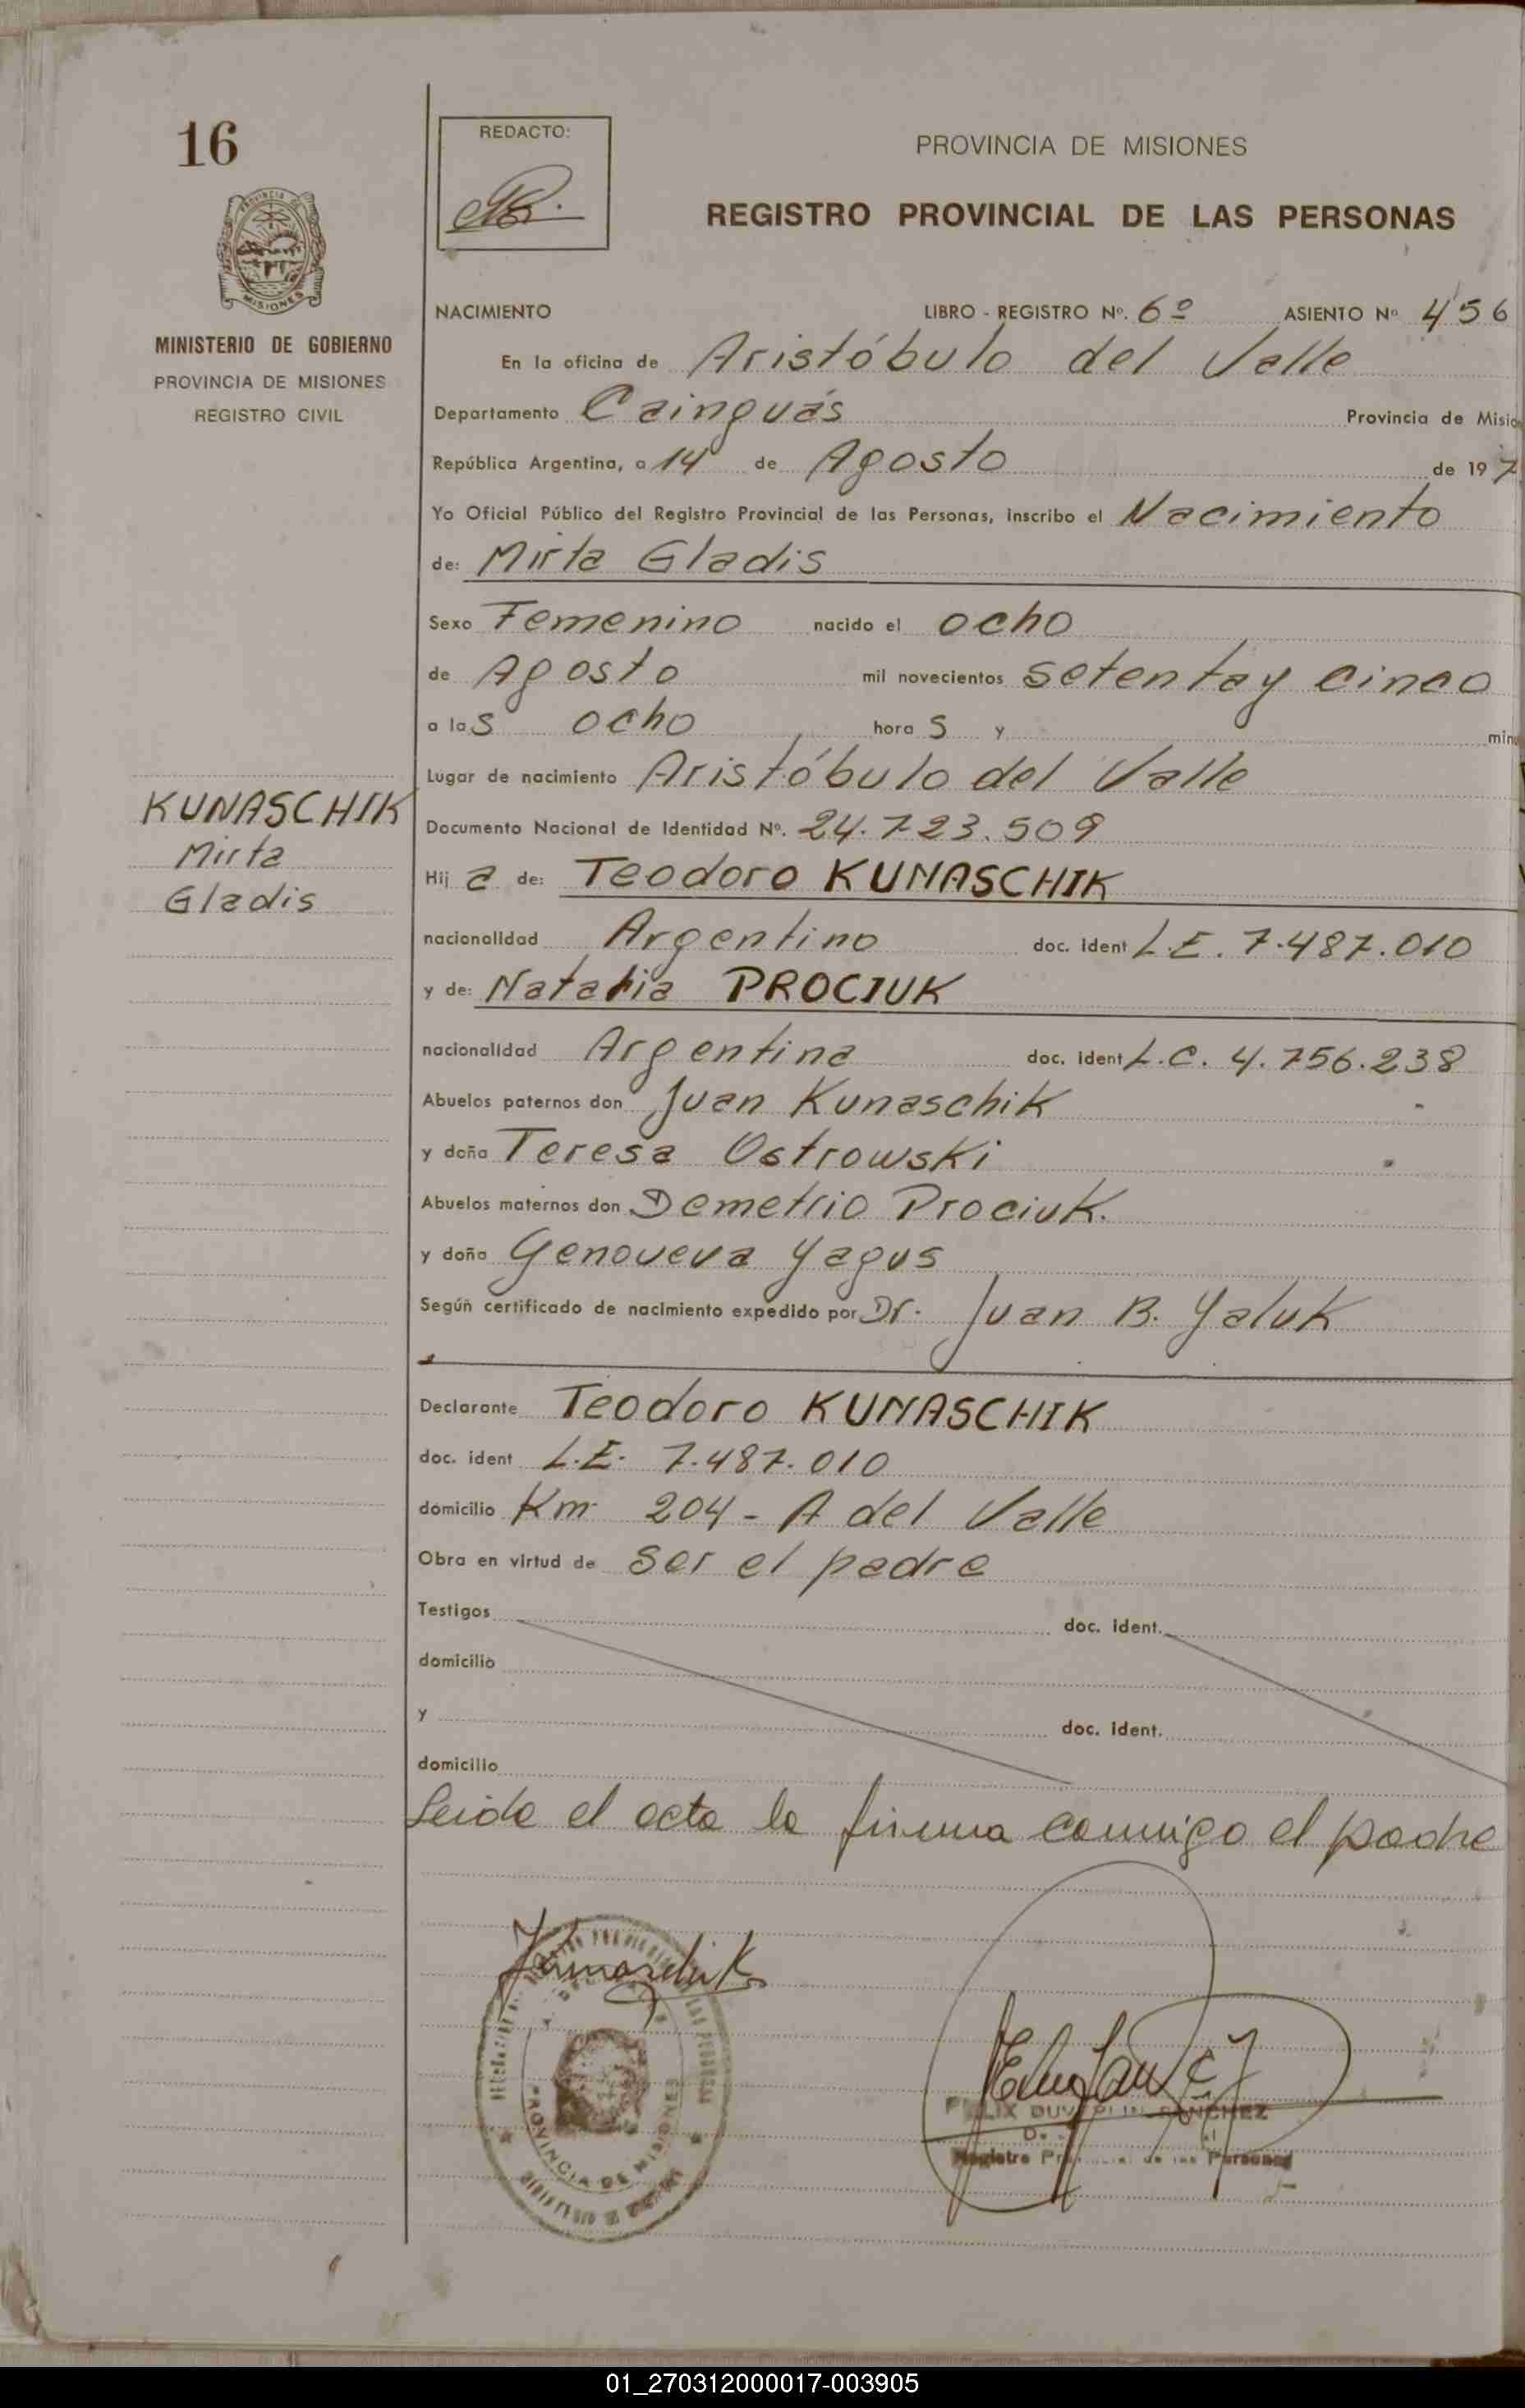 16
REDACTO:
PROVINCIA DE MISIONES
REGISTRO PROVINCIAL DE LAS PERSONAS
MISIONES
MINISTERIO DE GOBIERNO
PROVINCIA DE MISIONES
REGISTRO CIVIL
NACIMIENTO LIBRO - REGISTRO Nº. 6º ASIENTO Nº 456
En la oficina de Aristóbulo del Valle
Departamento Cainguás Provincia de Misio
República Argentina, a 14 de Agosto de 197
Yo Oficial Público del Registro Provincial de las Personas, inscribo el Nacimiento
de: Mirta Gladis
Sexo Femenino nacido el ocho
de Agosto mil novecientos setenta y cinco
a las ocho horas y minu
Lugar de nacimiento Aristóbulo del Valle
KUNASCHIK
Mirta
Gladis
Documento Nacional de Identidad Nº. 24.723.509
Hija de: Teodoro KUNASCHIK
nacionalidad Argentino doc. ident L.E. 7.487.010
y de: Natalia PROCIUK
nacionalidad Argentina doc. ident L.C. 4.756.238
Abuelos paternos don Juan Kunaschik
y doña Teresa Ostrowski
Abuelos maternos don Demetrio Prociuk.
y doña Genoveva Yagus
Según certificado de nacimiento expedido por Dr. Juan B. Yaluk
Declarante Teodoro KUNASCHIK
doc. ident L.E. 7.487.010
domicilio Km 204 - A del Valle
Obra en virtud de ser el padre
Testigos doc. ident.
domicilio
y doc. ident.
domicilio
Leida el acta la firma conmigo el padre
Kunaschik
PROVINCIA DE MISIONES
SANCHEZ
Registro de las Personas
01_270312000017-003905